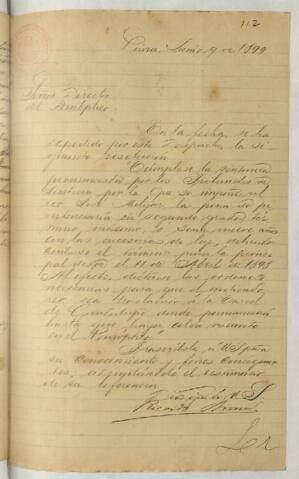 112
Lima, Junio 9 de 1899
Señor Director
del Panóptico.
En la fecha, se ha
expedido por este Despacho la si-
guiente resolución:
"Cúmplase la sentencia
pronunciada por los Tribunales de
Justicia por la que se impone al
reo José la pena de pe-
nitenciaría en segundo grado, tér-
mino máximo, o sean nueve años
con las accesorias de ley, debien-
do el término para la princi-
pal desde el 11 de Abril de 1898
Al efecto, díctense las órdenes
necesarias para que el indicado
reo sea trasladado a la Carcel
de Guadalupe donde permanecerá
hasta que haya celda vacante
en el Panóptico.
Trascríbola á US para
su conocimiento y fines consiguien-
tes, adjuntándole el testimonio
de su referencia.
Dios guarde á US.
Ricardo